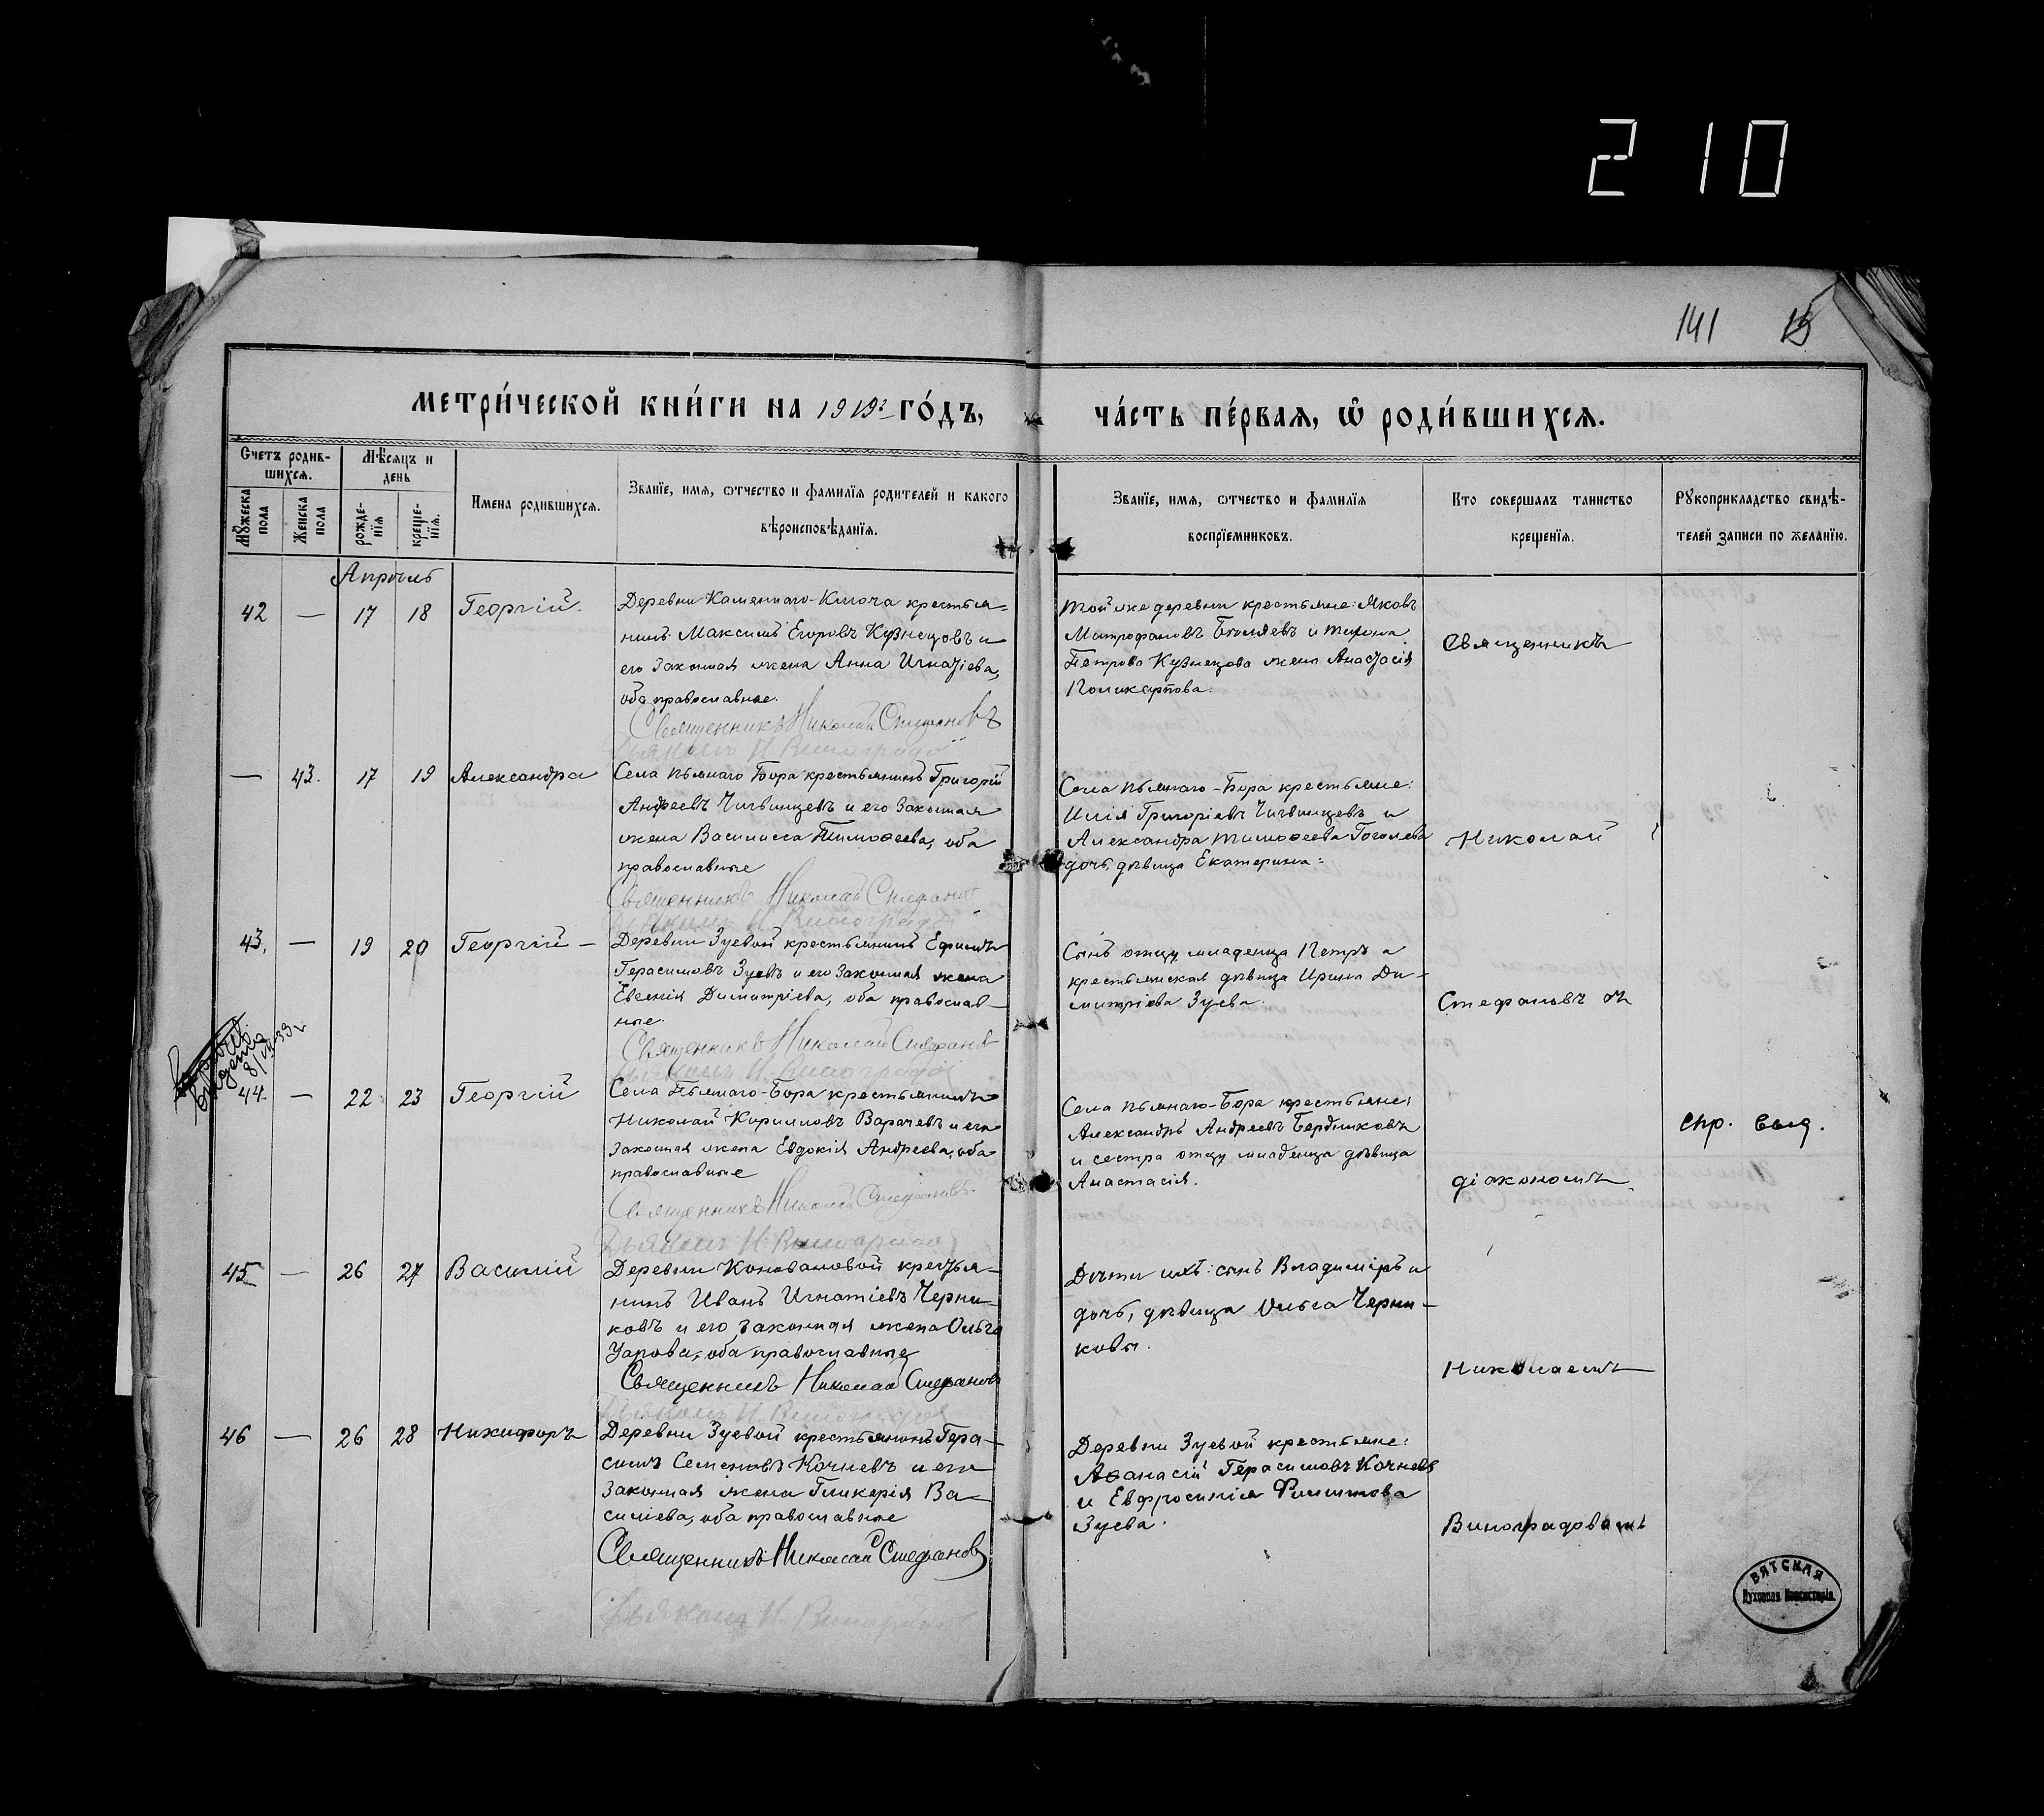 210
141 15
метри́ческой кни́ги на 1919г го́дъ,
ча́сть пе́рвая, ѡ҆ роди́вшихсѧ.
Счетъ родив-
шихсѧ.
Мѣсѧцъ и
день
Мꙋжеска
пола
Женска
пола
рожде-
нїѧ
креще-
нїѧ.
Имена родившихсѧ.
Званїе, имѧ, ѿтчество и фамилїѧ родителей и какого
вѣроисповѣданїѧ.
Званїе, имѧ, ѿтчество и фамилїѧ
воспрїемниковъ.
Кто совершалъ таинство
крещенїѧ.
Рꙋкоприкладство свидѣ-
телей записи по желанїю.
Апрѣль
42 — 17 18 Георгій.
Деревни Каменнаго-Ключа крестья-
нинъ Максимъ Егоровъ Кузнецовъ и
его законная жена Анна Игнатіева,
оба православные.
Священникъ Николай Стефановъ
Дьяконъ Н. Виноградов
Той же деревни крестьяне: Яковъ
Митрофановъ и
Петрова Кузнецова жена Анастасія
Поликарпова.
Священникъ
— 43. 17 19 Александра
Села Пьянаго Бора крестьянинъ Григорій
Андреевъ Чигвинцевъ и его законная
жена Василисса Тимоѳеева, оба
православные
Священникъ Николай Стефановъ
Дьяконъ Н. Виноградов
Села Пьянаго-Бора крестьяне:
Илія Григоріевъ Чигвинцевъ и
Александра Тимоѳеева Гоголева
дочь, дѣвица Екатерина.
Николай
43. — 19 20 Георгій —
Деревни Зуевой крестьянинъ Ефимъ
Герасимовъ Зуевъ и его законная жена
Евгенія Димитріева, оба православ-
ные.
Священникъ Николай Стефановъ
Дьяконъ Н. Виноградов
Сынъ отцу младенца Петръ и
крестьянская дѣвица Ирина Ди-
митріева Зуева.
Стефановъ съ
44. — 22 23 Георгій
Села Пьянаго-Бора крестьянинъ
Николай Кирилловъ Варачевъ и его
законная жена Евдокія Андреева, оба
православные
Священникъ Николай Стефановъ.
Дьяконъ Н. Виноградов
Села Пьянаго-Бора крестьяне:
Александръ Андреевъ Бердниковъ
и сестра отцу младенца дѣвица
Анастасія.
діакономъ
спр. выд.
45 — 26 27 Василій
Деревни Коноваловой крестья-
нинъ Иванъ Игнатіевъ Черни-
ковъ и его законная жена Ольга
Уарова, оба православные
Священникъ Николай Стефановъ
Дьяконъ Н. Виноградов
Дѣти ихъ: сынъ Владиміръ и
дочь, дѣвица Ольга Черни-
ковы.
Николаемъ
46 — 26 28 Никифоръ
Деревни Зуевой крестьянинъ Гера-
симъ Семеновъ Кочневъ и его
законная жена Гликерія Ва-
силіева, оба православные
Священникъ Николай Стефановъ
Дьяконъ Н. Виноградов
Деревни Зуевой крестьяне:
Аѳанасій Герасимовъ Кочневъ
и Евфросинія Филиппова
Зуева.
Виноградовымъ
ВЯТСКАЯ
Духовная Консисторія.